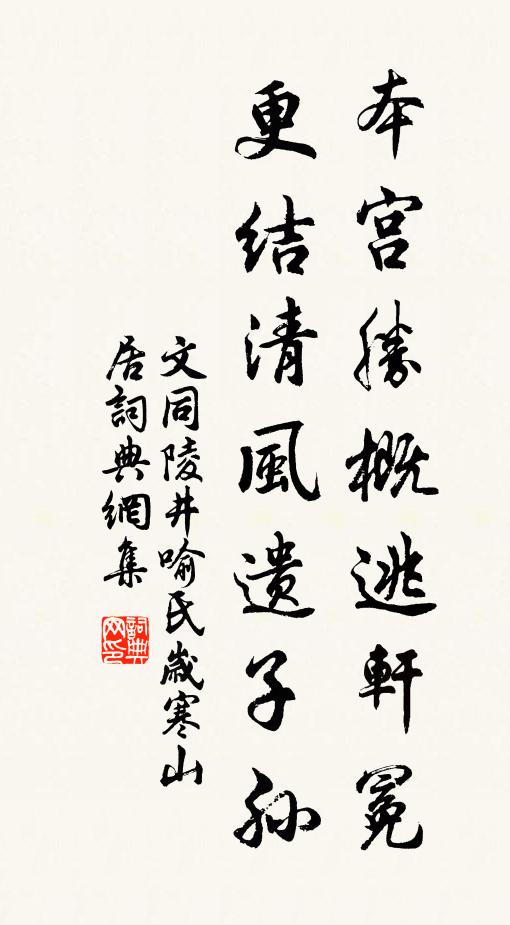 本宮勝概逃軒冕
更結清風遺子孫
文同陵井喻氏歲寒山
居詞典網集
詞典
网印